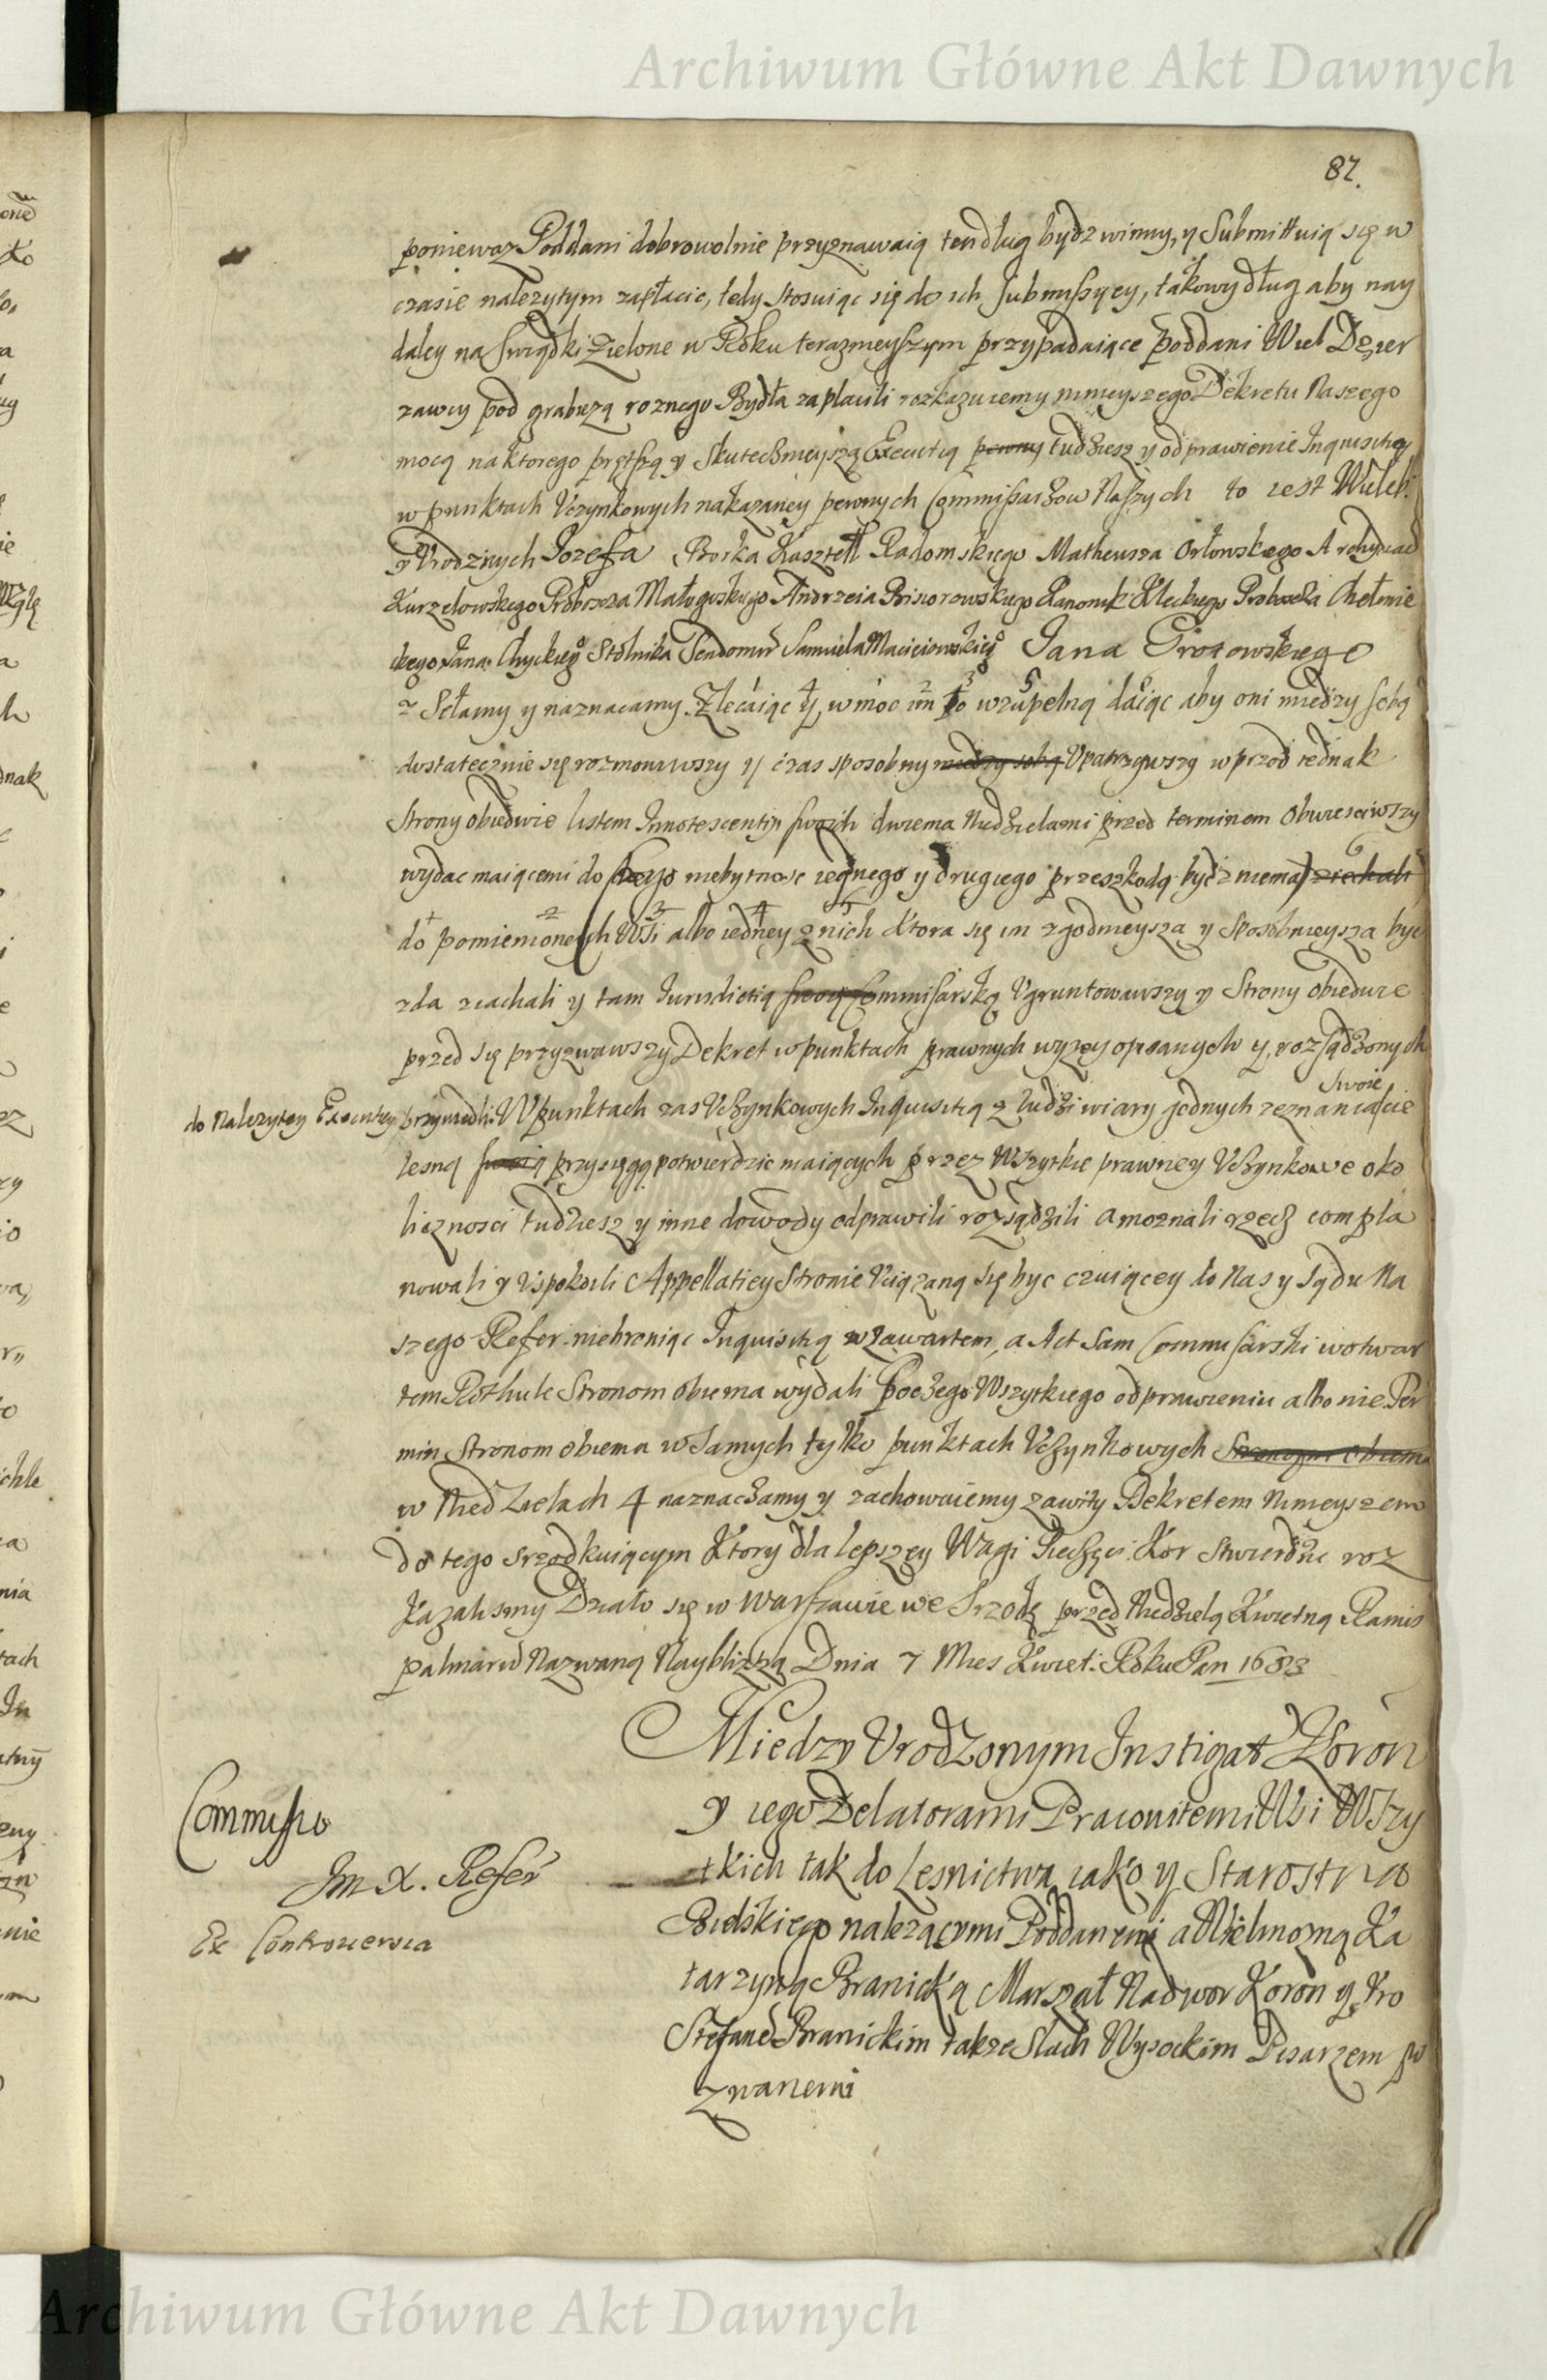 Archiwum Główne Akt Dawnych
87.
poniewaz Poddani dobrowolnie przyznawaią ten dług bydz winny, y Submittuią się w
czasie nalezytym zapłacic, tedy stosuiąc się do ich submissyey, takowy dług aby nay
daley na Swiątki Zielone w Roku teraznieyszym przypadaiące poddani Wiel Dzier
zawcy pod grabiezą roznego Bydła zapłacili rozkazuiemy ninieyszego Dekretu Naszego
mocą na ktorego prętszą y Skutecznieyszą Executią pewny tudziesz y odprawienie Inquisitiey
w punktach Uczynkowych nakazaney pewnych Commissarzow Naszych to iest Wieleb:
y Urodznych Jozefa Borka Kasztell Radomskiego Matheusza Orłowskiego Archydiac
Kurzelowskiego Proboszcza Małogoskiego Andrzeia Kanonik Kieleckiego Proboszcza Chełmie
ckego Jana Chyckieg Stolnika Sendomir Samuela Macieiowskieg Jana Grotowskiego
Scłamy y naznaczamy. Zlecaiąc y w moc im to wzupełną daiąc aby oni między sobą
dostatecznie się rozmowiwszy y czas sposobny między sobą Upatrzywszy wprzod iednak
Strony obiedwie listem Innotescentiy swoich dwiema Niedzielami przed terminem Obwiesciwszy
wydac maiącemi do czego niebytnosc iednego y drugiego przeszkodą bydz niema ziechali
do pomienionych Wsi albo iedney z nich ktora się im zgodnieysza y sposobnieysza byc
zda ziachali y tam Jurisdictią swoią Commissarską Ugruntowawszy y Strony obiedwie
przed się przyzwawszy Dekret w punktach prawnych wyzey opisanych y rozsądzonych
do Nalezytey Executiey przywiedli. W punktach zas Uczynkowych Inquisitią z ludzi wiary godnych zeznania swoie cie
lesną swoią przysięgą potwierdzic maiących przez Wszytkie prawne y Uczynkowe oko
licznosci tudziesz y inne dowody odprawili rozsądzili a moznali rzecz compla
nowali y Uspokoili Appellatiey Stronie Uciązaną się byc czuiącey do Nas y Sądu Na
szego Refer. niebroniąc Inquisitią w zawartem, a Act Sam Commissarski w otwar
tem Rothule Stronom obiema wydali Po czego Wszytkiego odprawieniu albo nie Ter
min Stronom obiema w Samych tylko punktach Uczynkowych Stronom obiema
w Niedzielach 4 naznaczamy y zachowuiemy zawity Dekretem Ninieyszem
do tego srzodkuiącym Ktory dla lepszey Wagi Pieczęci Kor Stwierdzic roz
kazalismy Działo się w Warszawie we Srzodę przed Niedzielą Kwietną Ramis
palmarū Nazwaną Nayblizszą Dnia 7 Mies Kwiet: Roku Pan 1683
Miedzy Urodzonym Instigat Koron
y iego Delatorami Pracowitemi Wsi Wszy
tkich tak do Lesnictwa iako y Starostwa
Bielskiego nalezącymi Poddanemi a Wielmozną Ka
tarzyną Branicką Marszał Nadwor Koron y Uro
Stefanē Branickim takze Slach Wysockim Pisarzem
zwanemi
Commissio
Im X. Refer
Ex Controuersia
Archiwum Główne Akt Dawnych